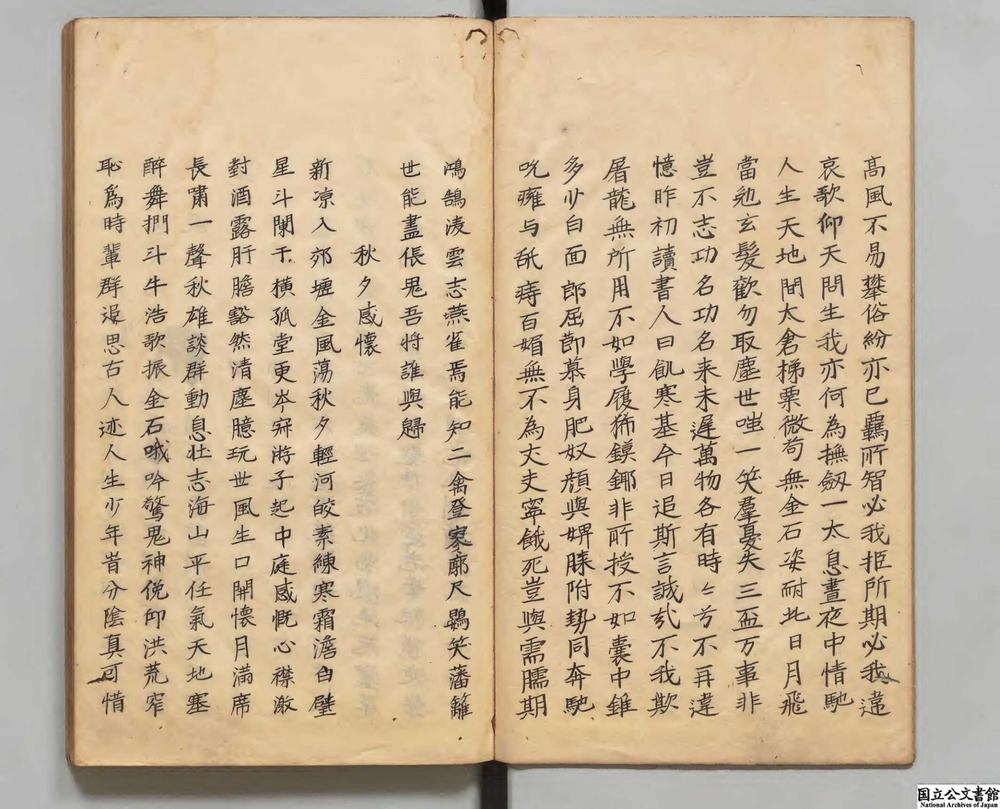 高風不易攀俗紛亦已羈所智必我拒所期必我違
哀歌仰天問生我亦何為撫劔一太息晝夜中情馳
人生天地間大倉梯粟微苟無金石姿耐此日月飛
當勉玄髮歡勿取塵世嗤一笑羣憂失三盃万事非
豈不志功名功名来未遲萬物各有時々兮不再違
憶昨初讀書人曰飢寒基今日追斯言誠哉不我欺
屠龍無所用不如學履狶鏌鎁非所授不如囊中錐
多少白面郎屈節慕身肥奴顔與婢膝附勢同奔馳
吮癰与舐痔百媚無不為丈夫寧餓死豈與需臑期
鴻鵠凌雲志燕雀焉能知二禽登寥廓尺鷃笑藩籬
世能盡倀鬼吾將誰與歸
秋夕感懷
新凉入郊壚金風蕩秋夕輕河皎素練寒霜澹白壁
星斗闌干横孤堂更岑寂將子起中庭感慨心襟激
對酒露肝膽豁然清塵臆玩世風生口開懷月滿席
長嘯一聲秋雄談群動息壮志海山平任氣天地塞
醉舞捫斗牛浩歌振金石哦吟驚鬼神俛仰洪荒窄
恥為時輩群遠思古人迹人生少年昔分陰真可惜
国立公文書館
National Archives of Japan